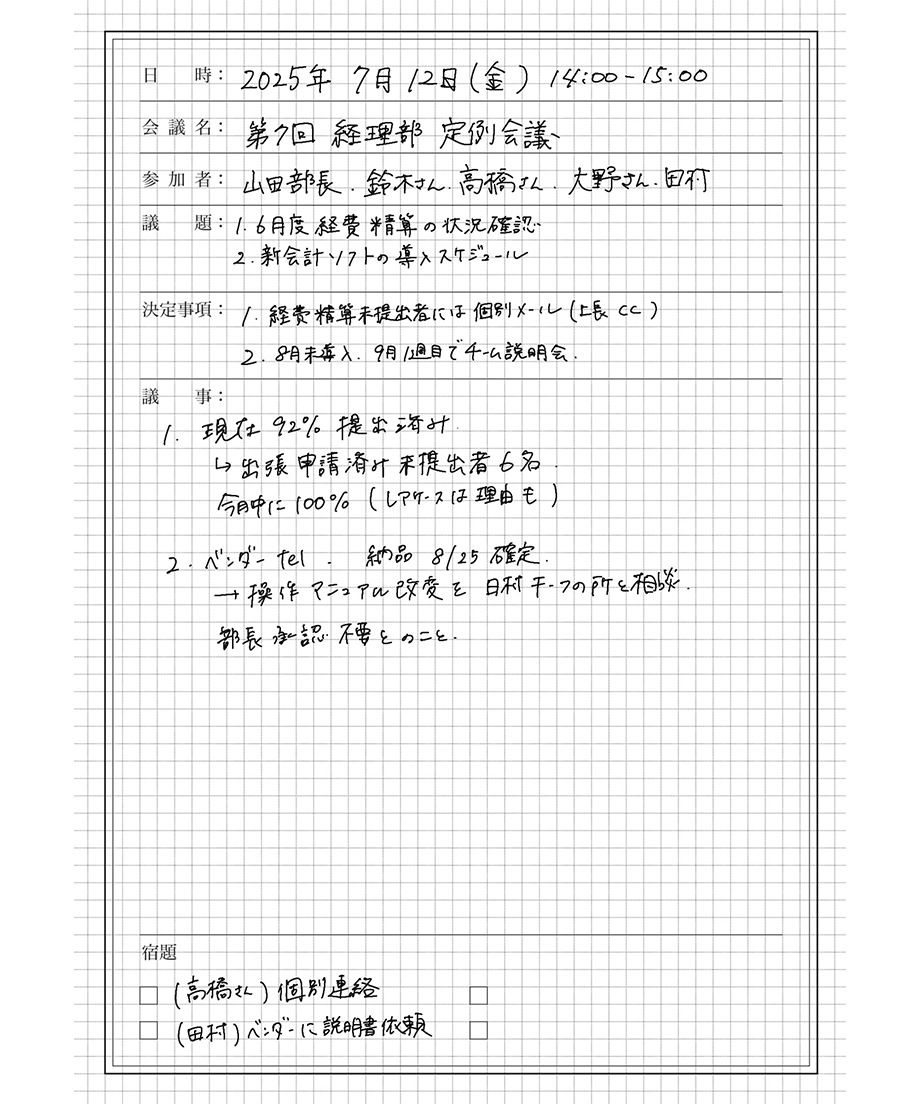 日 時： 2025年 7月 12日(金) 14:00-15:00
会 議 名： 第7回 経理部 定例会議
参 加 者： 山田部長.鈴木さん.高橋さん.大野さん.田村
議 題： 1.6月度経費精算の状況確認
2.新会計ソフトの導入スケジュール
決定事項： 1.経費精算未提出者には個別メール(上長CC)
2.8月末導入.9月1週目でチーム説明会.
議 事：
1. 現在 92% 提出済み.
↳ 出張申請済み未提出者6名.
今月中に100% (レアケースは理由も)
2.ベンダー tel . 納品 8/25 確定.
→ 操作マニュアル改変を 日村チーフの所と相談.
部長承認不要とのこと.
宿題
□ (高橋さん)個別連絡 □
□ (田村)ベンダーに説明書依頼 □